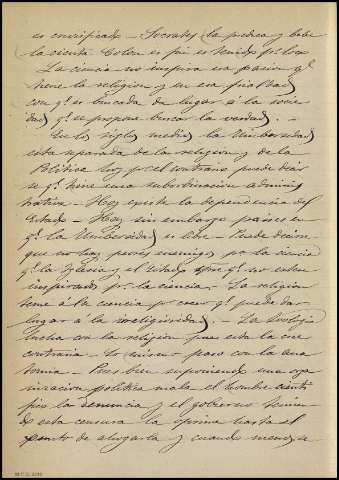 es crucificado – Socrates la predica y bebe
la cicuta Colon es por es tenido pr loco
La ciencia no inspira esa pasion qe
tiene la religion y en esa frialdad
con qe es buscada da lugar á la socie
dad qe se propone buscar la verdad. –
En los siglos medios la Unibersidad
esta separada de la religion y de la
Politica hoy pr el contrario puede decir
se qe tiene una subordinacion adminis
trativa – Hoy existe la dependencia del
Estado – Hay sin embargo paises en
qe la Unibersidad es libre – Puede decirse
que no hay peores enemigos pa la ciencia
qe la Iglesia y el Estado qe no esten
inspirados pr la ciencia – La religion
teme á la ciencia pr creer qe puede dar
lugar á la irreligiosidad. – La Geologia
lucha con la religion pues esta la cree
contraria – Lo mismo paso con la ana
tomia – Pues bien suponiendo una orga
nizacion politica mala el hombre cienti
fico la denuncia y el gobierno temien
do esta censura la oprime hasta el
punto de ahogarla y cuando menos se